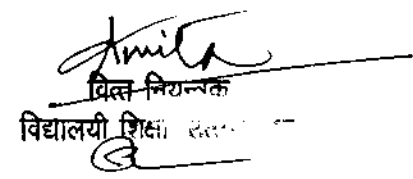 Amita
वित्त नियन्त्रक
विद्यालयी शिक्षा